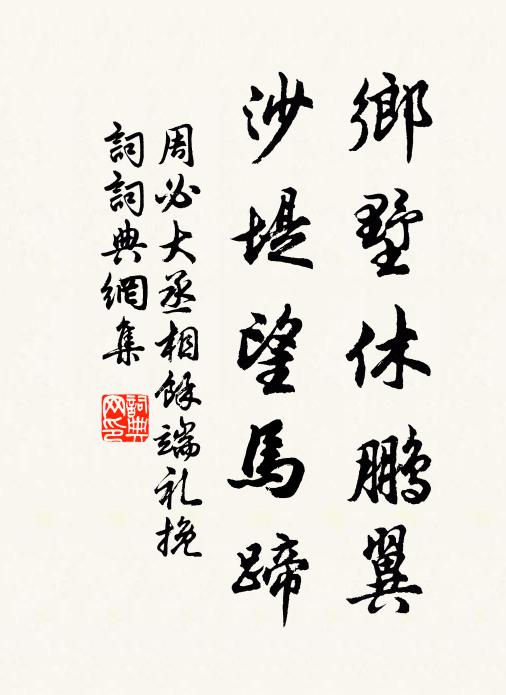 鄉墅休鵬翼
沙堤望馬蹄
周必大丞相餘端礼挽
詞詞典網集
詞典网印